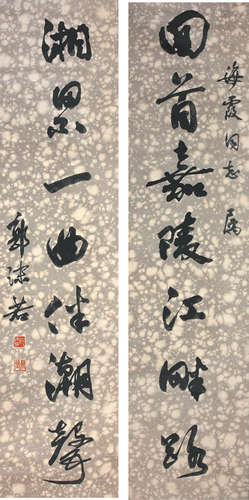 海霞同志属
回首嘉陵江畔路
湘累一曲伴潮聲
郭沫若